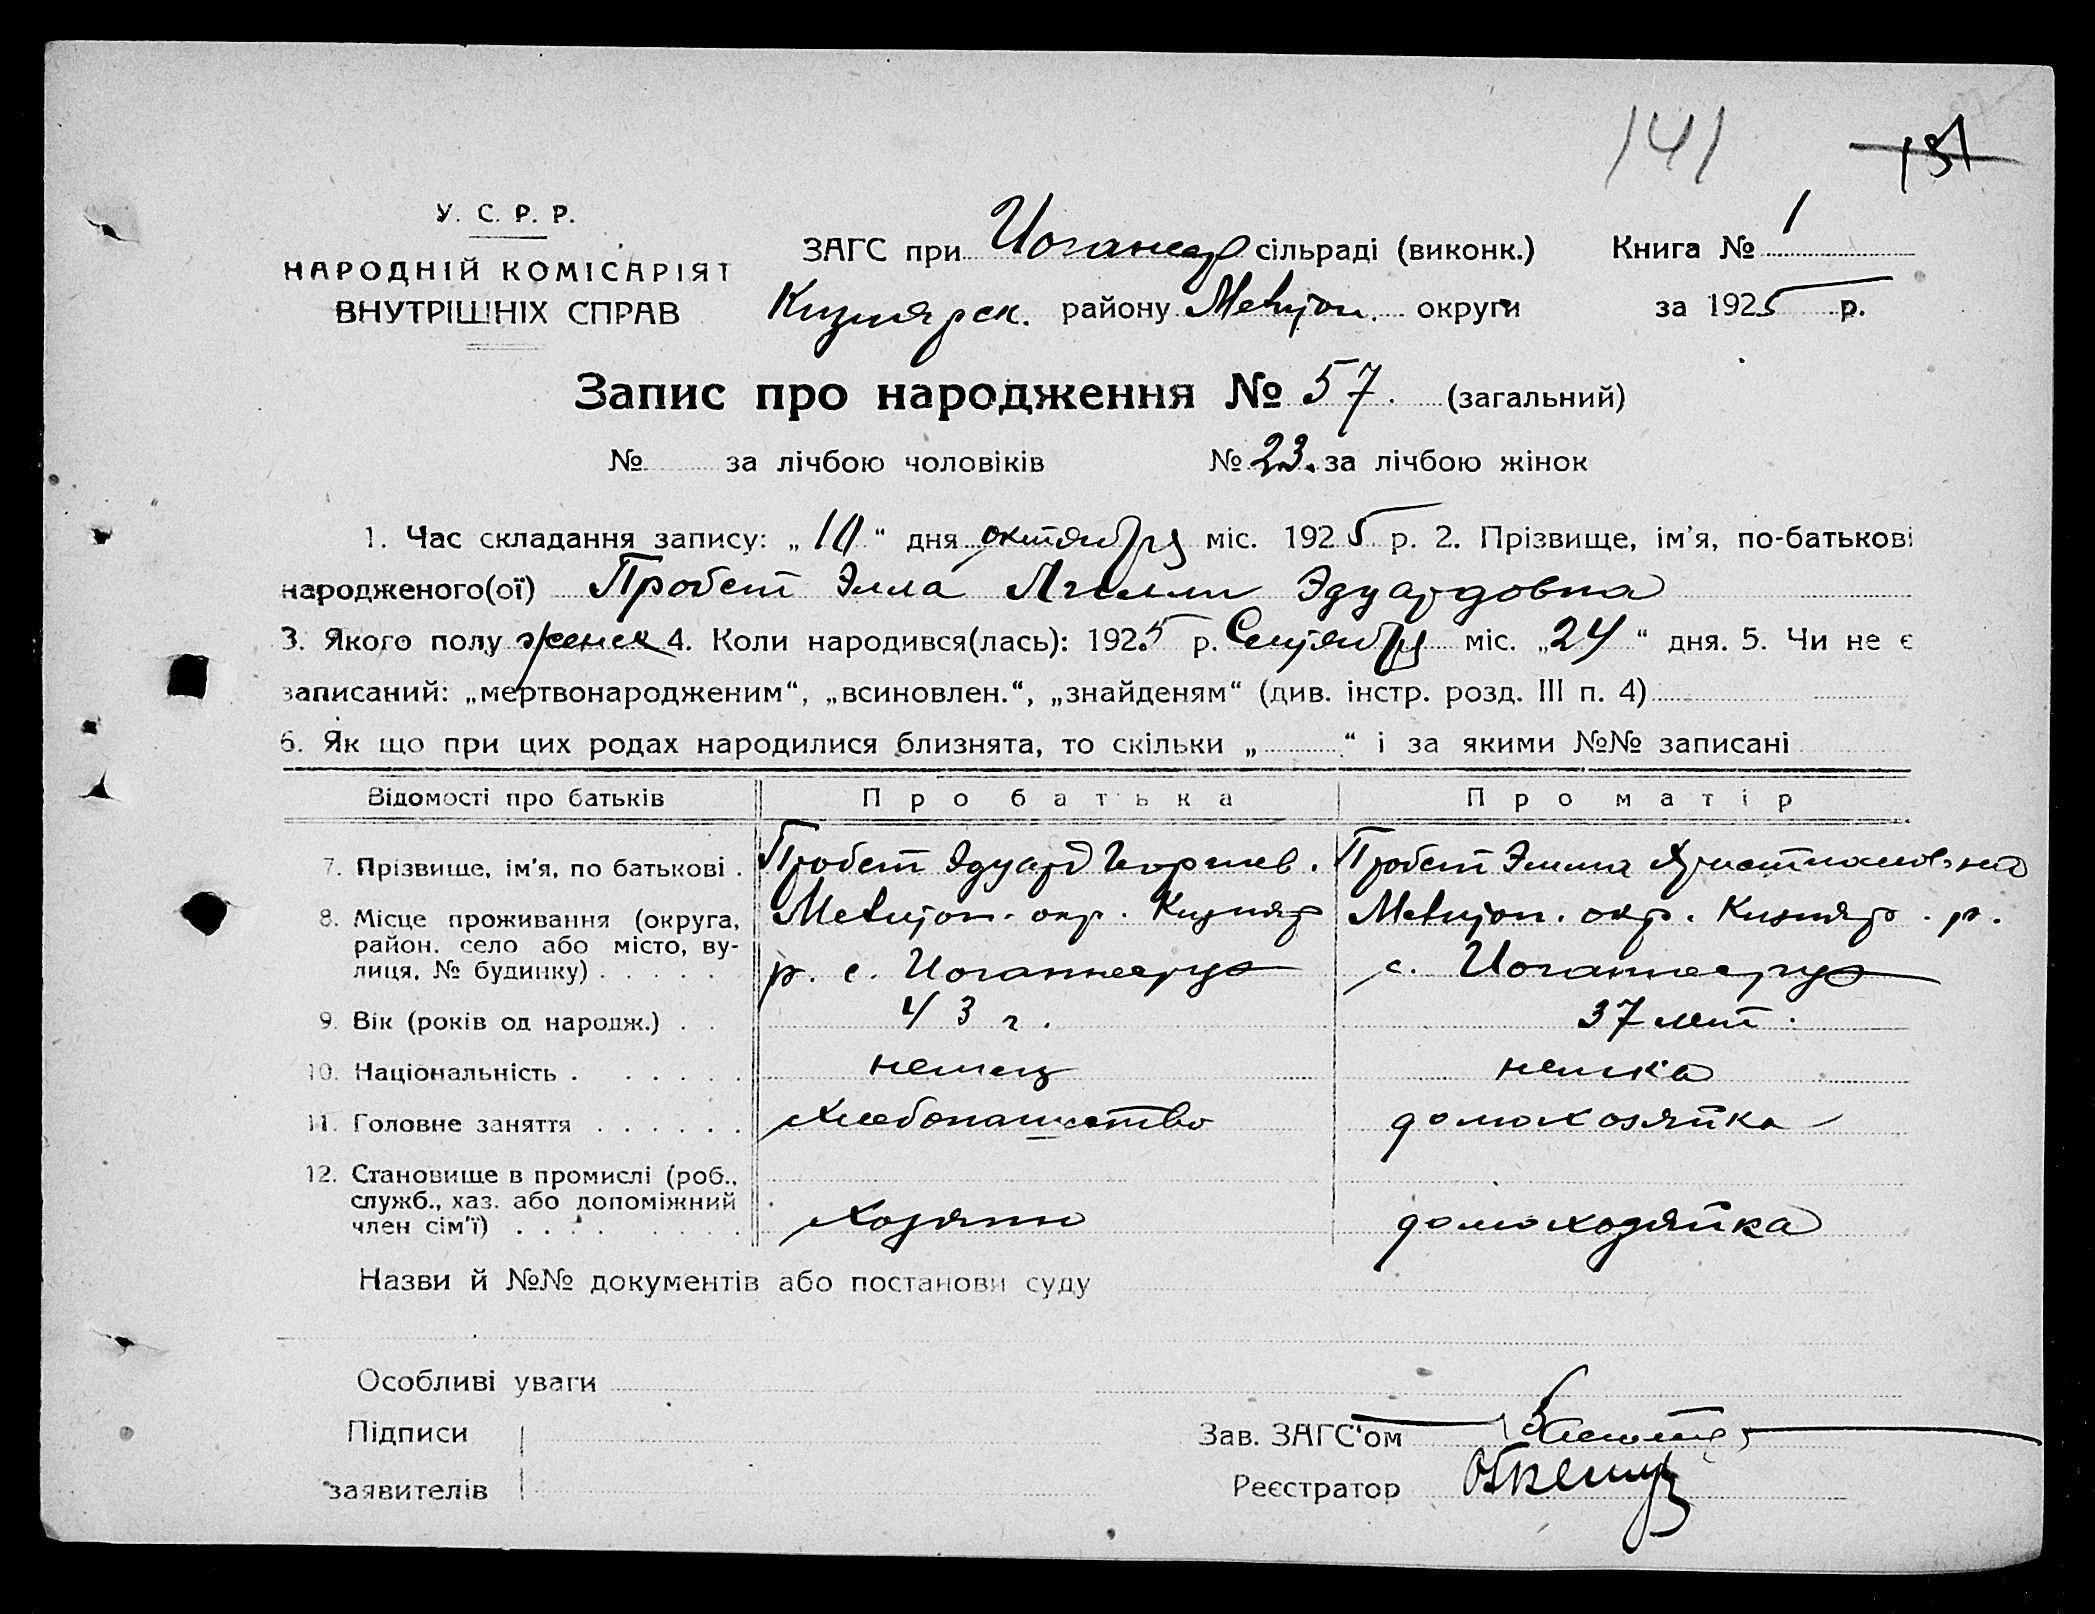 141 131
У. С. Р. Р.
НАРОДНІЙ КОМІСАРІЯТ
ВНУТРІШНІХ СПРАВ
ЗАГС при сільраді (виконк.) Книга № 1
району округи за 1925 р.
Запис про народження № 57. (загальний)
№ за лічбою чоловіків № 23. за лічбою жінок
1. Час складання запису: „10“ дня октября міс. 1925 р. 2. Прізвище, ім'я, по-батькові
народженого(ої) Пробст Элла Эдуардовна
3. Якого полу женск 4. Коли народився(лась): 1925 р. Сентября міс. „24“ дня. 5. Чи не є
записаний: „мертвонародженим“, „всиновлен.“, „знайденям“ (див. інстр. розд. III п. 4)
6. Як що при цих родах народилися близнята, то скільки „ “ і за якими №№ записані
Відомості про батьків Про батька Про матір
7. Прізвище, ім'я, по батькові . Пробст Эдуард Георгиев. Пробст Эмма Христиановна
8. Місце проживання (округа,
район, село або місто, ву-
лиця, № будинку) . . . . .
Мелитоп. окр. Кизияр
р. с. Иоганнесру
Мелитоп. окр. Кизияр. р.
с. Иоганнесру
9. Вік (років од народж.) . . 43 г. 37 лет.
10. Національність . . . . . . немец немка
11. Головне заняття . . . . . . Хлебопашество домохозяйка
12. Становище в промислі (роб.,
служб., хаз. або допоміжний
член сім'ї) . . . . . . . . Хозяин домохозяйка
Назви й №№ документів або постанови суду
Особливі уваги
Підписи
заявителів
Зав. ЗАГС'ом
Реєстратор